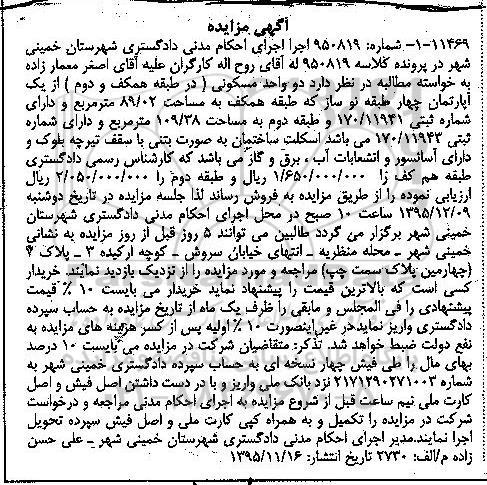 آگهی مزایده
۱۱۴۶۹-۱- شماره: ۹۵۰۸۱۹ اجرا اجرای احکام مدنی دادگستری شهرستان خمینی
شهر در پرونده کلاسه ۹۵۰۸۱۹ له آقای روح اله کارگران علیه آقای اصغر معمار زاده
به خواسته مطالبه در نظر دارد دو واحد مسکونی ( در طبقه همکف و دوم ) از یک
آپارتمان چهار طبقه نو ساز که طبقه همکف به مساحت ۸۹/۰۲ مترمربع و دارای
شماره ثبتی ۱۷۰/۱۱۹۴۱ و طبقه دوم به مساحت ۱۰۹/۳۸ مترمربع و دارای شماره
ثبتی ۱۷۰/۱۱۹۴۳ می باشد اسکلت ساختمان به صورت بتنی با سقف تیرچه بلوک و
دارای آسانسور و انشعابات آب ، برق و گاز می باشد که کارشناس رسمی دادگستری
طبقه هم کف را ۱/۶۵۰/۰۰۰/۰۰۰ ریال و طبقه دوم را ۲/۰۵۰/۰۰۰/۰۰۰ ریال
ارزیابی نموده را از طریق مزایده به فروش رساند لذا جلسه مزایده در تاریخ دوشنبه
۱۳۹۵/۱۲/۰۹ ساعت ۱۰ صبح در محل اجرای احکام مدنی دادگستری شهرستان
خمینی شهر برگزار می گردد طالبین می توانند ۵ روز قبل از روز مزایده به نشانی
خمینی شهر ـ محله منظریه ـ انتهای خیابان سروش ـ کوچه ارکیده ۳ ـ پلاک ۴
(چهارمین پلاک سمت چپ) مراجعه و مورد مزایده را از نزدیک بازدید نمایند خریدار
کسی است که بالاترین قیمت را پیشنهاد نماید خریدار می بایست ۱۰ ٪ قیمت
پیشنهادی را فی المجلس و مابقی را ظرف یک ماه از تاریخ مزایده به حساب سپرده
دادگستری واریز نماید در غیر اینصورت ۱۰ ٪ اولیه پس از کسر هزینه های مزایده به
نفع دولت ضبط خواهد شد. تذکر: متقاضیان شرکت در مزایده می بایست ۱۰ درصد
بهای مال را طی فیش چهار نسخه ای به حساب سپرده دادگستری خمینی شهر به
شماره ۲۱۷۱۲۹۰۲۷۱۰۰۳ نزد بانک ملی واریز و با در دست داشتن اصل فیش و اصل
کارت ملی نیم ساعت قبل از شروع مزایده به اجرای احکام مدنی مراجعه و درخواست
شرکت در مزایده را تکمیل و به همراه کپی کارت ملی و اصل فیش سپرده تحویل
اجرا نمایند.مدیر اجرای احکام مدنی دادگستری شهرستان خمینی شهر ـ علی حسن
زاده م/الف: ۲۷۳۰ تاریخ انتشار: ۱۳۹۵/۱۱/۱۶